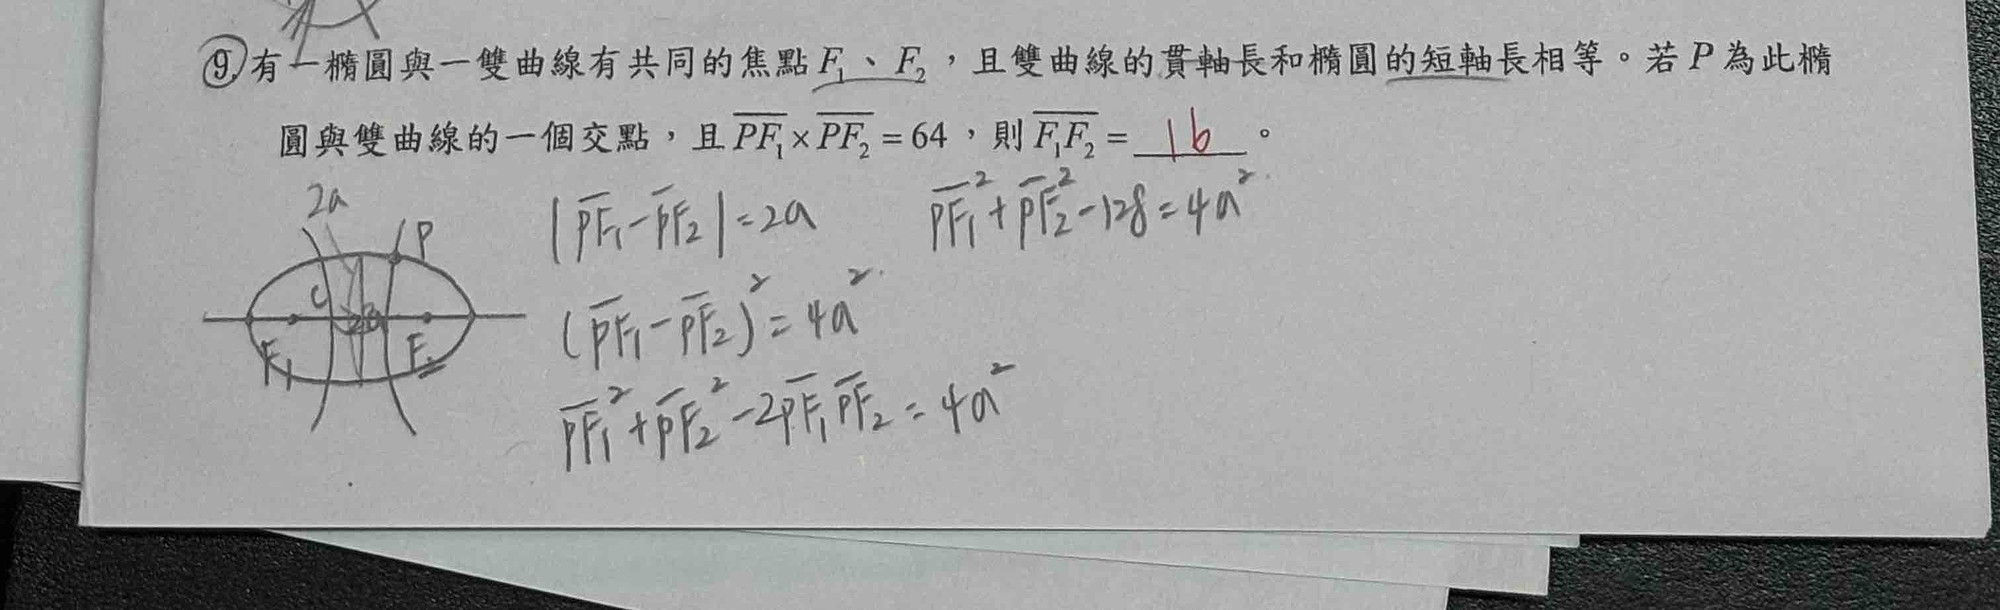 ⑨ 有一橢圓與一雙曲線有共同的焦點 F₁、F₂,且雙曲線的貫軸長和橢圓的短軸長相等。若 P 為此橢
圓與雙曲線的一個交點,且 PF₁ × PF₂ = 64,則 F₁F₂ = 16 。
2a
P
F₁ F₂
|PF₁ - PF₂| = 2a
PF₁² + PF₂² - 128 = 4a²
(PF₁ - PF₂)² = 4a²
PF₁² + PF₂² - 2PF₁ PF₂ = 4a²